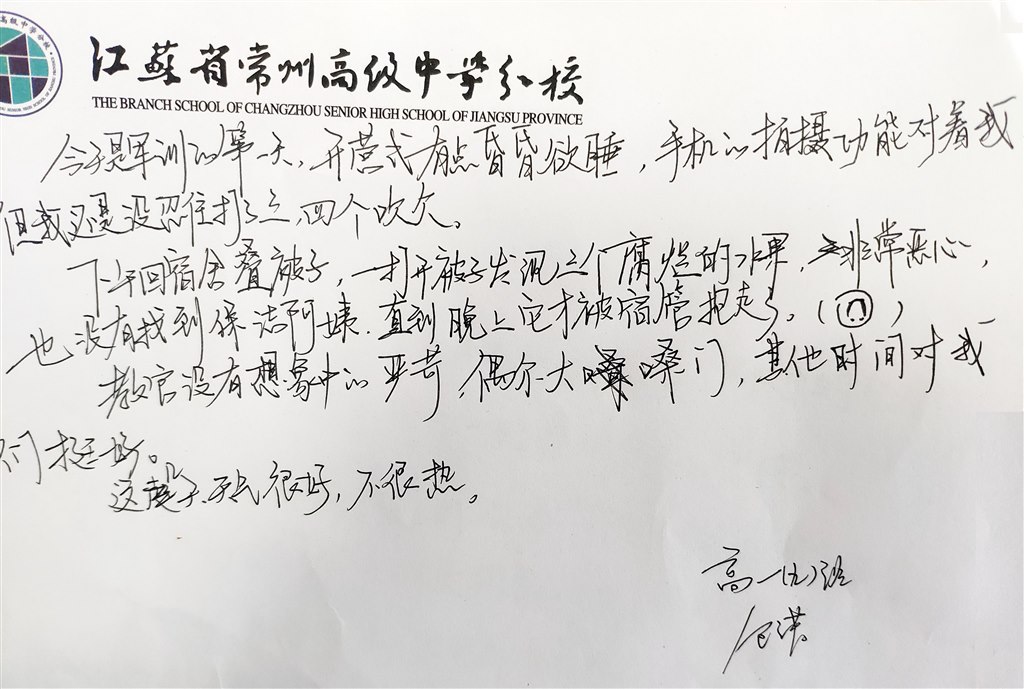 高级中学分校
江蘇省常州高级中学分校
THE BRANCH SCHOOL OF CHANGZHOU SENIOR HIGH SCHOOL OF JIANGSU PROVINCE
今天是军训的第一天，开营式有点昏昏欲睡，手机的拍摄功能对着我
但我还是没忍住打了三四个吹欠。
下午回宿舍叠被子，一打开被子发现三个腐烂的水果，非常恶心，
也没有找到保洁阿姨.直到晚上它才被宿管抱走了。（）
教官没有想象中的严苛，偶尔大嗓门，其他时间对我
们挺好。
这天气很好，不很热。
高一(九)班